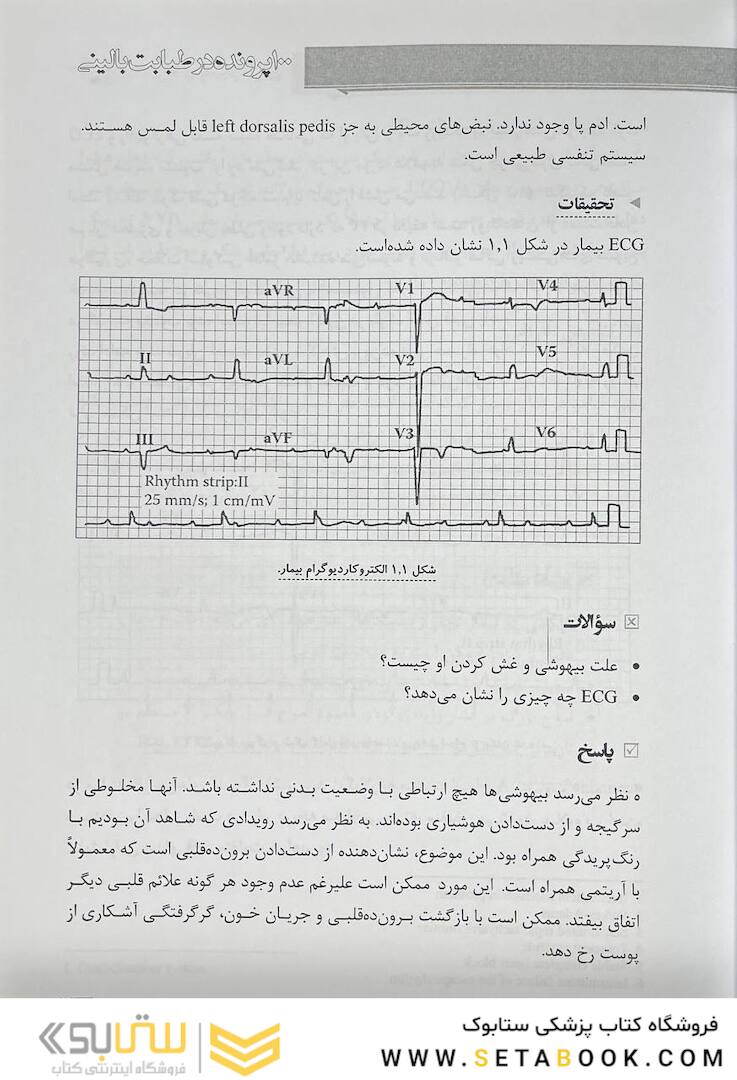 ۱۰۰پرونده در طبابت بالینی
است. ادم پا وجود ندارد. نبض‌های محیطی به جز left dorsalis pedis قابل لمس هستند.
سیستم تنفسی طبیعی است.
تحقیقات
ECG بیمار در شکل ۱,۱ نشان داده شده‌است.
aVR V1 V4
II aVL V2 V5
III aVF V3 V6
Rhythm strip:II
25 mm/s; 1 cm/mV
شکل ۱,۱ الکتروکاردیوگرام بیمار.
سؤالات
• علت بیهوشی و غش کردن او چیست؟
• ECG چه چیزی را نشان می‌دهد؟
پاسخ
ه نظر می‌رسد بیهوشی‌ها هیچ ارتباطی با وضعیت بدنی نداشته باشد. آنها مخلوطی از
سرگیجه و از دست‌دادن هوشیاری بوده‌اند. به نظر می‌رسد رویدادی که شاهد آن بودیم با
رنگ‌پریدگی همراه بود. این موضوع، نشان‌دهنده از دست‌دادن برون‌ده‌قلبی است که معمولاً
با آریتمی همراه است. این مورد ممکن است علیرغم عدم وجود هر گونه علائم قلبی دیگر
اتفاق بیفتد. ممکن است با بازگشت برون‌ده‌قلبی و جریان خون، گرگرفتگی آشکاری از
پوست رخ دهد.
فروشگاه کتاب پزشکی ستابوک
WWW.SETABOOK.COM
ستابوک
فروشگاه اینترنتی کتاب